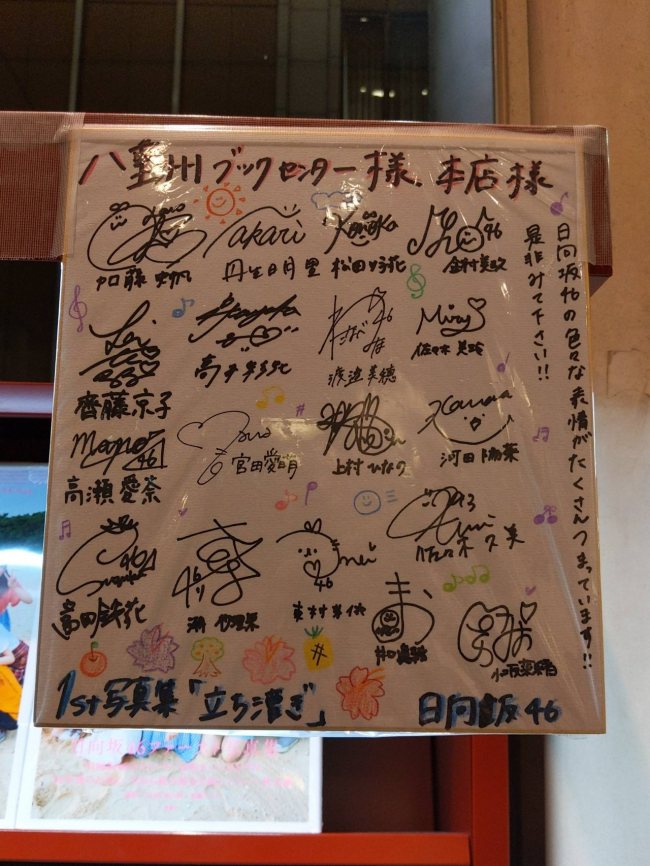 八重洲ブックセンター様、本店様
日向坂46の色々な表情がたくさんつまっています!!
是非みて下さい!!
加藤史帆
Takari
丹生明里
松田好花
46
金村美玖
高本彩花
46
渡邉美穂
Mirey
佐々木美玲
齊藤京子
Mana
46
高瀬愛奈
宮田愛萌
上村ひなの
河田陽菜
46
富田鈴花
46
潮紗理菜
mei
46
東村芽依
佐々木久美
井口眞緒
小坂菜緒
1st写真集「立ち漕ぎ」
日向坂46
日向坂46